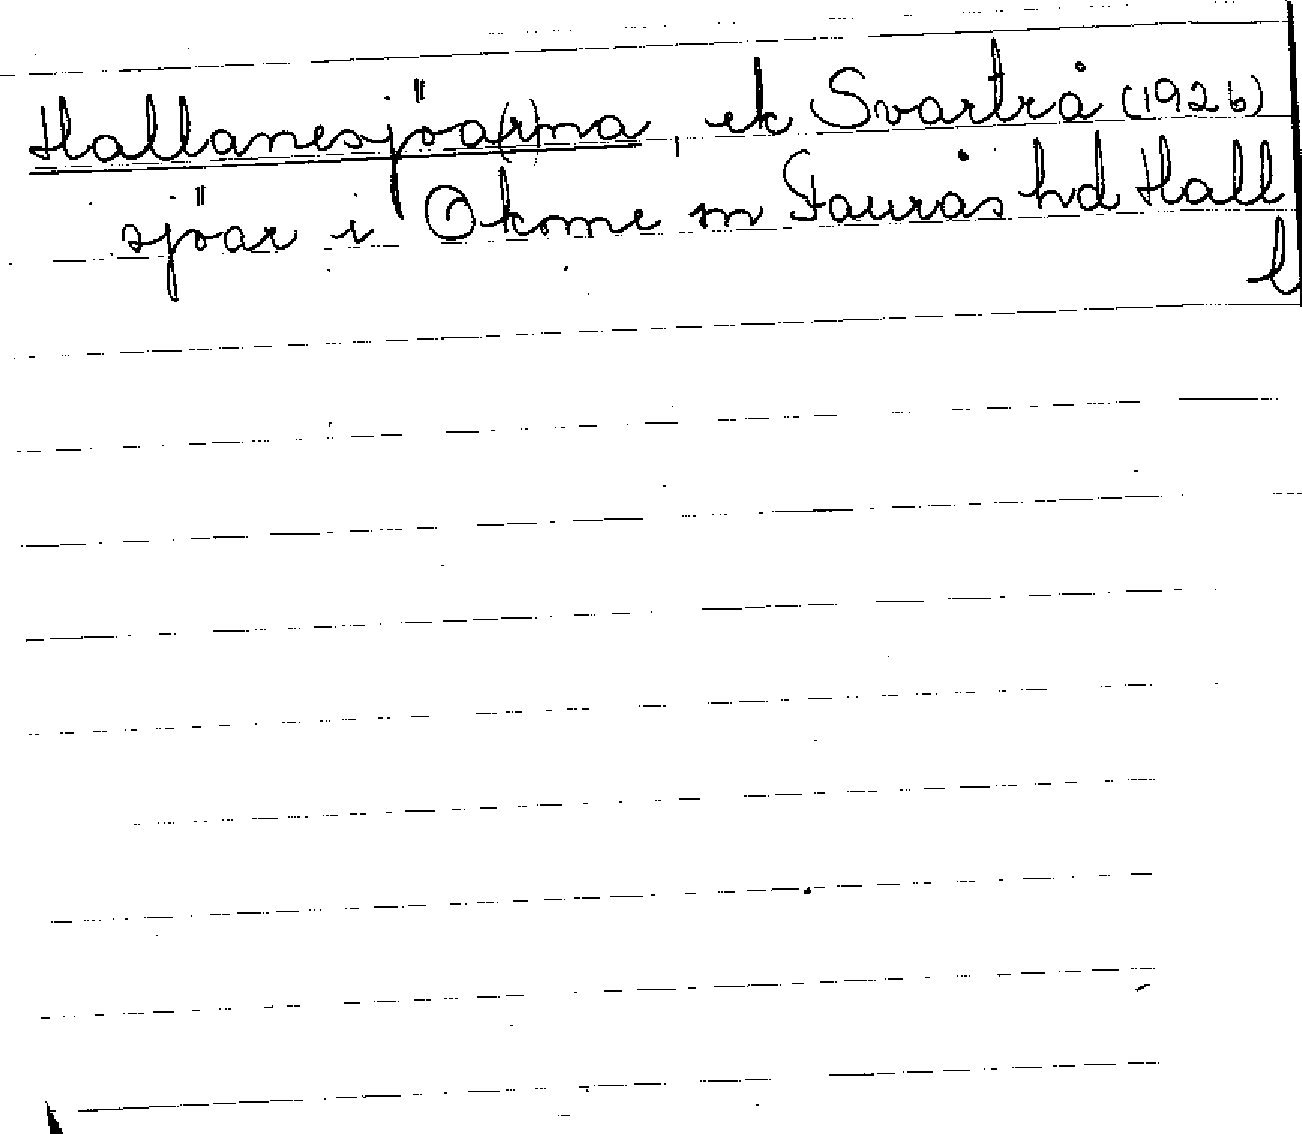 Hallanesjöa(r)na, ek Svartrå (1926)
sjöar i Okome sn Faurås hd Hall
l